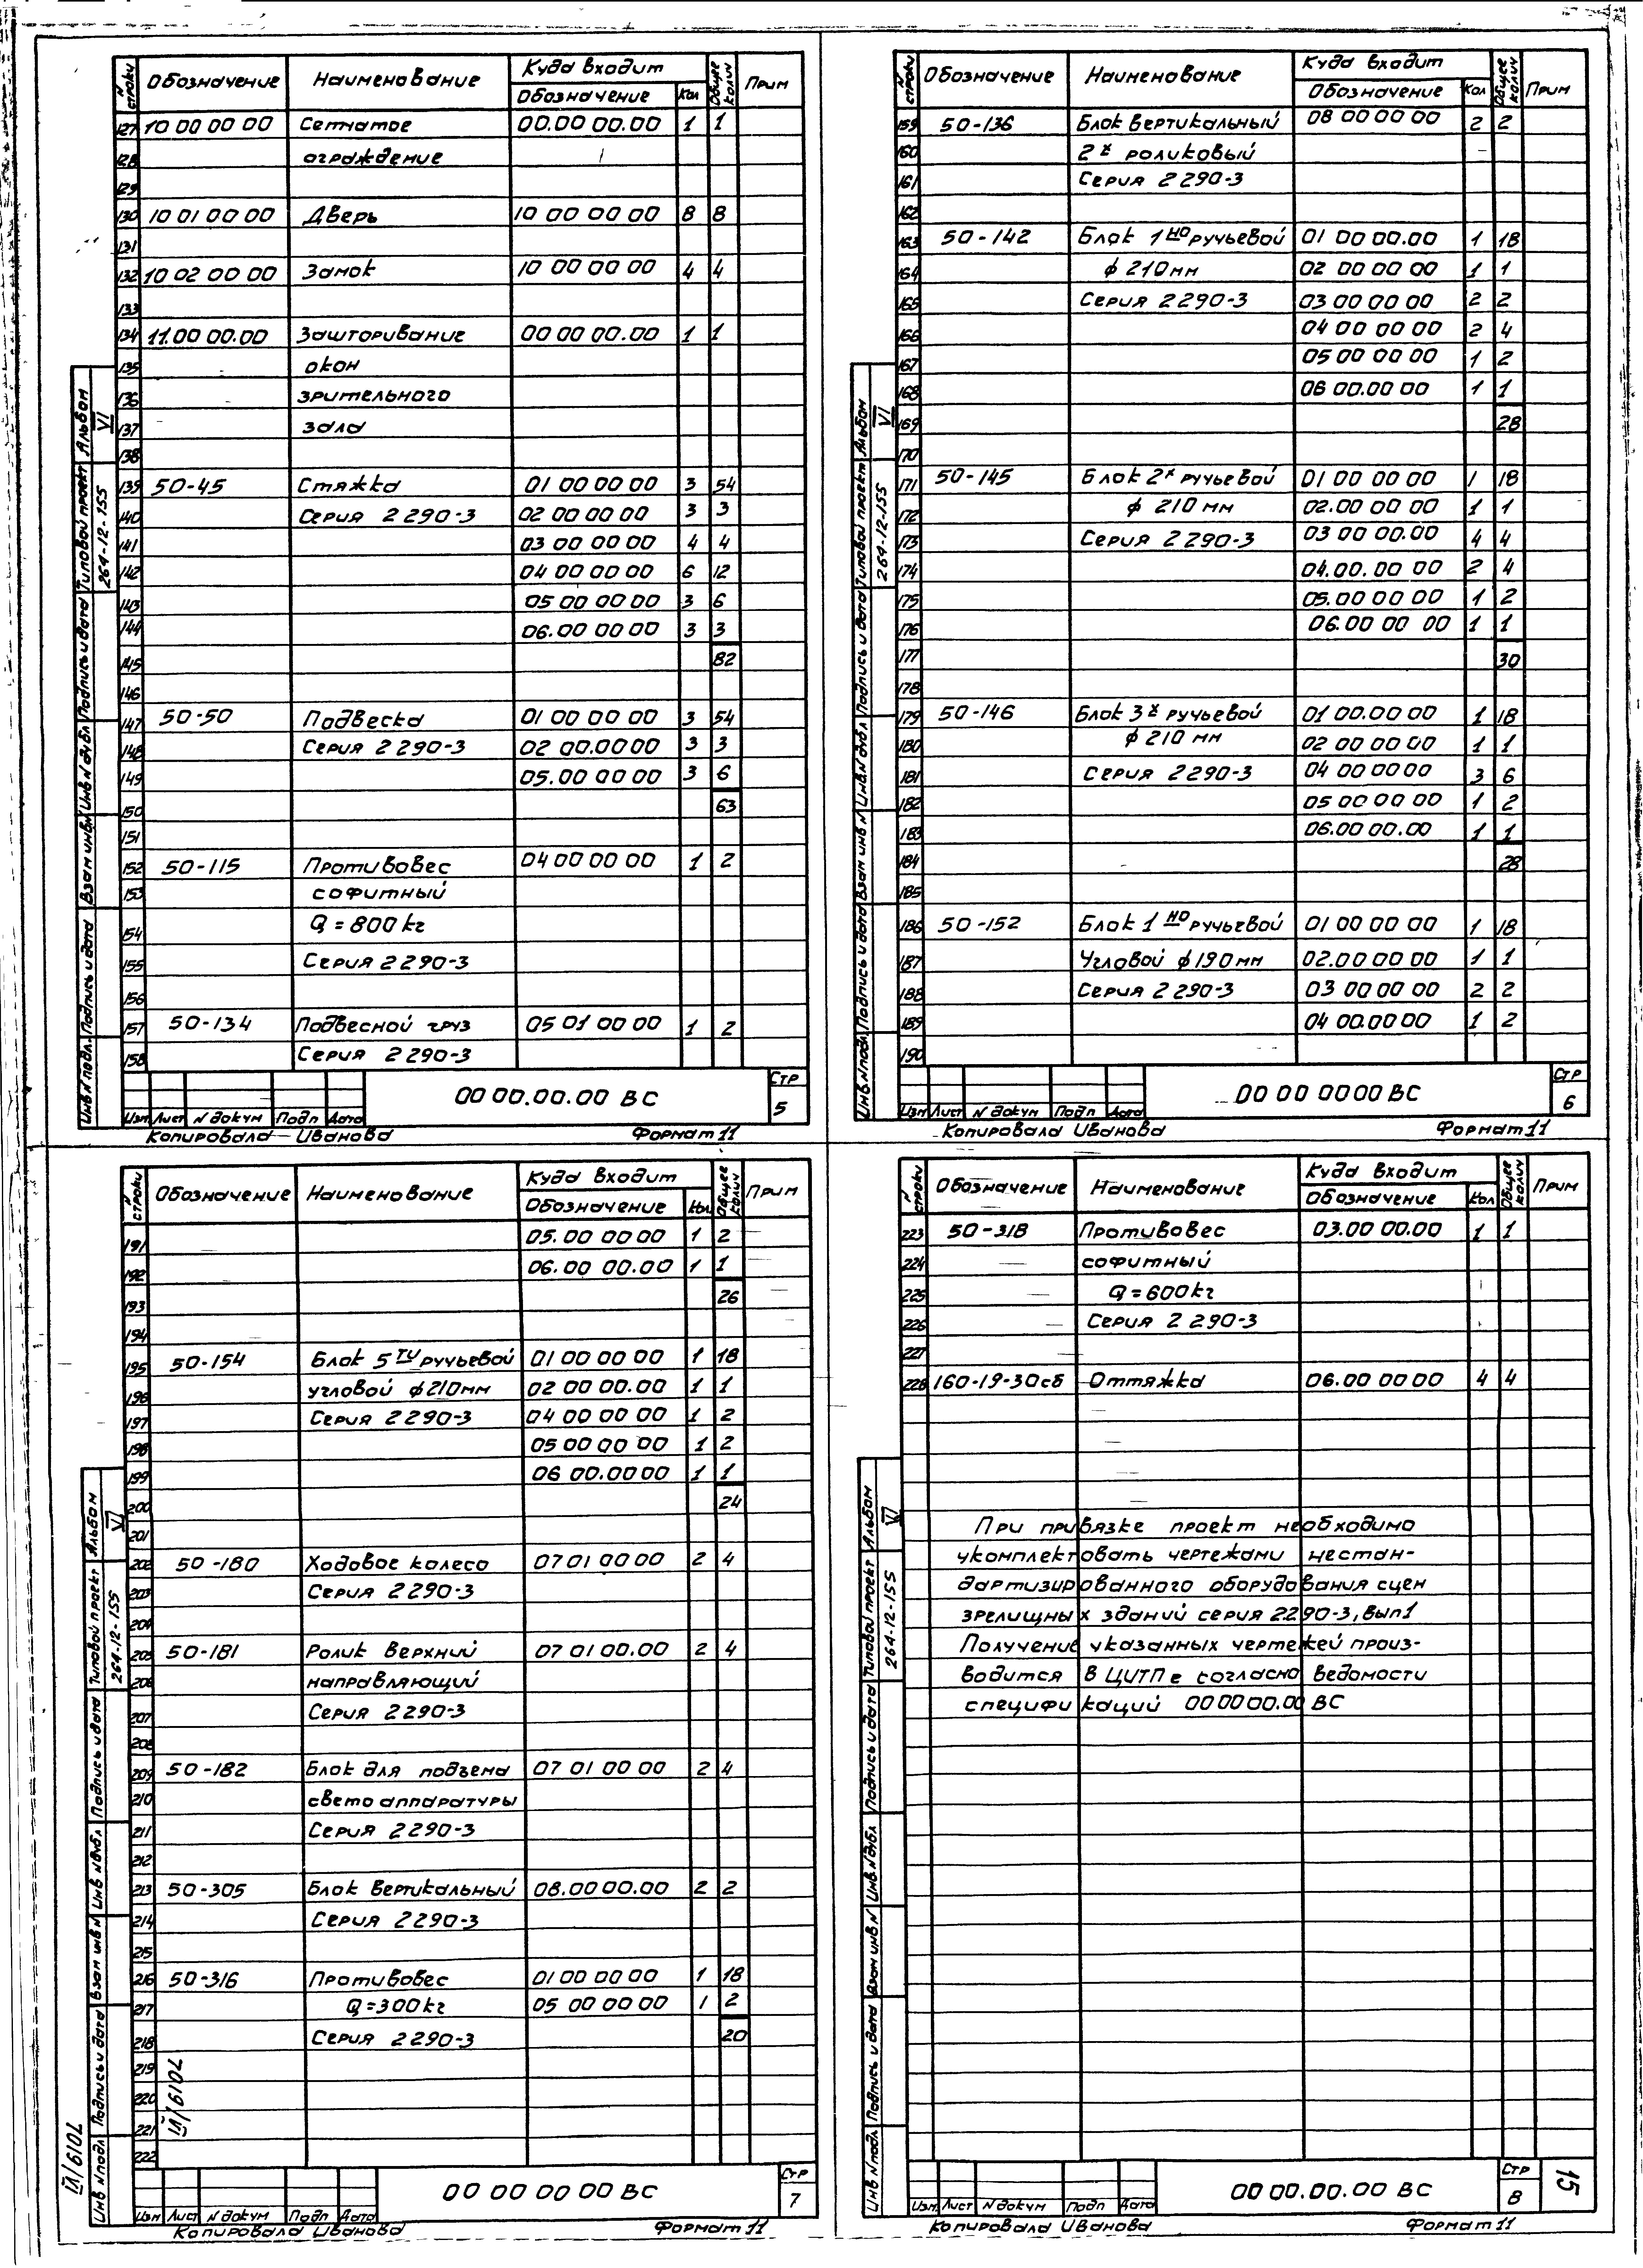 N строки Обозначение Наименование Куда входит Обозначение Кол Общее колич Прим
127 10 00 00 00 Сетчатое 00.00 00.00 1 1
128 ограждение
129
130 10 01 00 00 Дверь 10 00 00 00 8 8
131
132 10 02 00 00 Замок 10 00 00 00 4 4
133
134 11.00 00.00 Зашторивание 00 00 00.00 1 1
135 окон
136 зрительного
137 зала
138
139 50-45 Стяжка 01 00 00 00 3 54
140 Серия 2 290-3 02 00 00 00 3 3
141 03 00 00 00 4 4
142 04 00 00 00 6 12
143 05 00 00 00 3 6
144 06.00 00 00 3 3
145 82
146
147 50-50 Подвеска 01 00 00 00 3 54
148 Серия 2 290-3 02 00.00 00 3 3
149 05.00 00 00 3 6
150 63
151
152 50-115 Противовес 04 00 00 00 1 2
153 софитный
154 Q = 800 кг
155 Серия 2 290-3
156
157 50-134 Подвесной груз 05 01 00 00 1 2
158 Серия 2 290-3
Альбом VI
Типовой проект 264-12-155
Подпись и дата
Инв N дубл
Взам инв N
Подпись и дата
Инв N подл.
Изм Лист N докум Подп Дата
00 00.00.00 ВС
Стр 5
Копировала Иванова Формат 11
N строки Обозначение Наименование Куда входит Обозначение Кол Общее колич Прим
159 50-136 Блок вертикальный 08 00 00 00 2 2
160 2х роликовый
161 Серия 2 290-3
162
163 50-142 Блок 1но ручьевой 01 00 00.00 1 18
164 ф 210 мм 02 00 00 00 1 1
165 Серия 2 290-3 03 00 00 00 2 2
166 04 00 00 00 2 4
167 05 00 00 00 1 2
168 06 00.00 00 1 1
169 28
170
171 50-145 Блок 2х ручьевой 01 00 00 00 1 18
172 ф 210 мм 02.00 00 00 1 1
173 Серия 2 290-3 03 00 00.00 4 4
174 04.00.00 00 2 4
175 05.00 00 00 1 2
176 06.00 00 00 1 1
177 30
178
179 50-146 Блок 3х ручьевой 01 00.00 00 1 18
180 ф 210 мм 02 00 00 00 1 1
181 Серия 2 290-3 04 00 00 00 3 6
182 05 00 00 00 1 2
183 06.00 00.00 1 1
184 28
185
186 50-152 Блок 1но ручьевой 01 00 00 00 1 18
187 Угловой ф 190 мм 02.00 00 00 1 1
188 Серия 2 290-3 03 00 00 00 2 2
189 04 00.00 00 1 2
190
Альбом VI
Типовой проект 264-12-155
Подпись и дата
Инв N дубл
Взам инв N
Подпись и дата
Инв N подл
Изм Лист N докум Подп Дата
00 00 0000 ВС
Стр 6
Копировала Иванова Формат 11
N строки Обозначение Наименование Куда входит Обозначение Кол Общее колич Прим
191 05.00 00 00 1 2
192 06.00 00.00 1 1
193 26
194
195 50-154 Блок 5ти ручьевой 01 00 00 00 1 18
196 угловой ф 210 мм 02 00 00.00 1 1
197 Серия 2 290-3 04 00 00 00 1 2
198 05 00 00 00 1 2
199 06 00.00 00 1 1
200 24
201
202 50-180 Ходовое колесо 07 01 00 00 2 4
203 Серия 2 290-3
204
205 50-181 Ролик верхний 07 01 00.00 2 4
206 направляющий
207 Серия 2 290-3
208
209 50-182 Блок для подъема 07 01 00 00 2 4
210 светоаппаратуры
211 Серия 2 290-3
212
213 50-305 Блок вертикальный 08.00 00.00 2 2
214 Серия 2 290-3
215
216 50-316 Противовес 01 00 00 00 1 18
217 Q=300 кг 05 00 00 00 1 2
218 Серия 2 290-3 20
219
220
221
222
7019/VI
Альбом VI
Типовой проект 264-12-155
Подпись и дата
Инв N дубл
Взам инв N
Подпись и дата
Инв N подл
7019/VI
Изм Лист N докум Подп Дата
00 00 00 00 ВС
Стр 7
Копировала Иванова Формат 11
N строки Обозначение Наименование Куда входит Обозначение Кол Общее колич Прим
223 50-318 Противовес 03.00 00.00 1 1
224 софитный
225 Q = 600 кг
226 Серия 2 290-3
227
228 160-19-30сб Оттяжка 06.00 00 00 4 4
При привязке проект необходимо
укомплектовать чертежами нестан-
дартизированного оборудования сцен
зрелищных зданий серия 2290-3, вып1
Получение указанных чертежей произ-
водится в ЦИТП е согласно ведомости
спецификаций 00 00 00.00 ВС
Альбом VI
Типовой проект 264-12-155
Подпись и дата
Инв N дубл
Взам инв N
Подпись и дата
Инв N подл
Изм Лист N докум Подп Дата
00 00.00.00 ВС
Стр 8
15
Копировала Иванова Формат 11